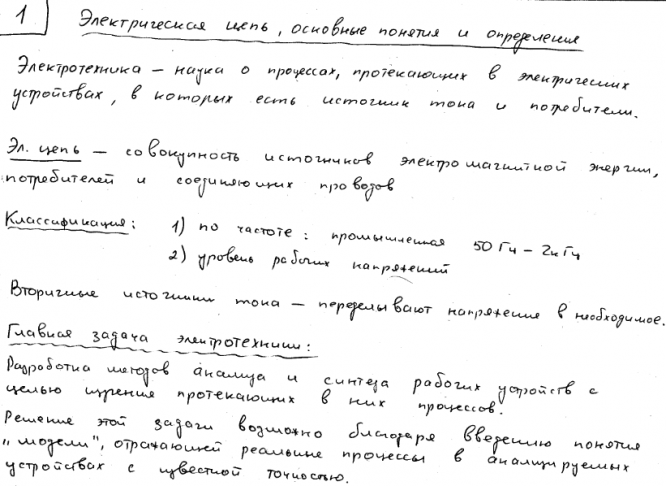 1
Электрическая цепь, основные понятия и определения
Электротехника – наука о процессах, протекающих в электрических
устройствах, в которых есть источник тока и потребители.
Эл. цепь – совокупность источников электромагнитной энергии,
потребителей и соединяющих проводов
Классификация: 1) по частоте: промышленная 50 Гц – 2кГц
2) уровень рабочих напряжений
Вторичные источники тока – переделывают напряжение в необходимое.
Главная задача электротехники:
Разработка методов анализа и синтеза рабочих устройств с
целью изучения протекающих в них процессов.
Решение этой задачи возможно благодаря введению понятия
„модели", отражающей реальные процессы в анализируемых
устройствах с известной точностью.